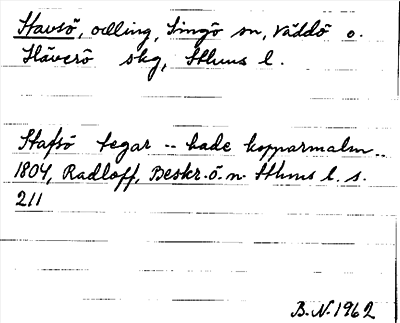 Stavsö, odling, Singö sn, Väddö o.
Häverö skg, Sthms l.
Stafsö tegar -- hade kopparmalm --
1804, Radloff, Beskr. ö. n. Sthms l. s.
211
B.N. 1962